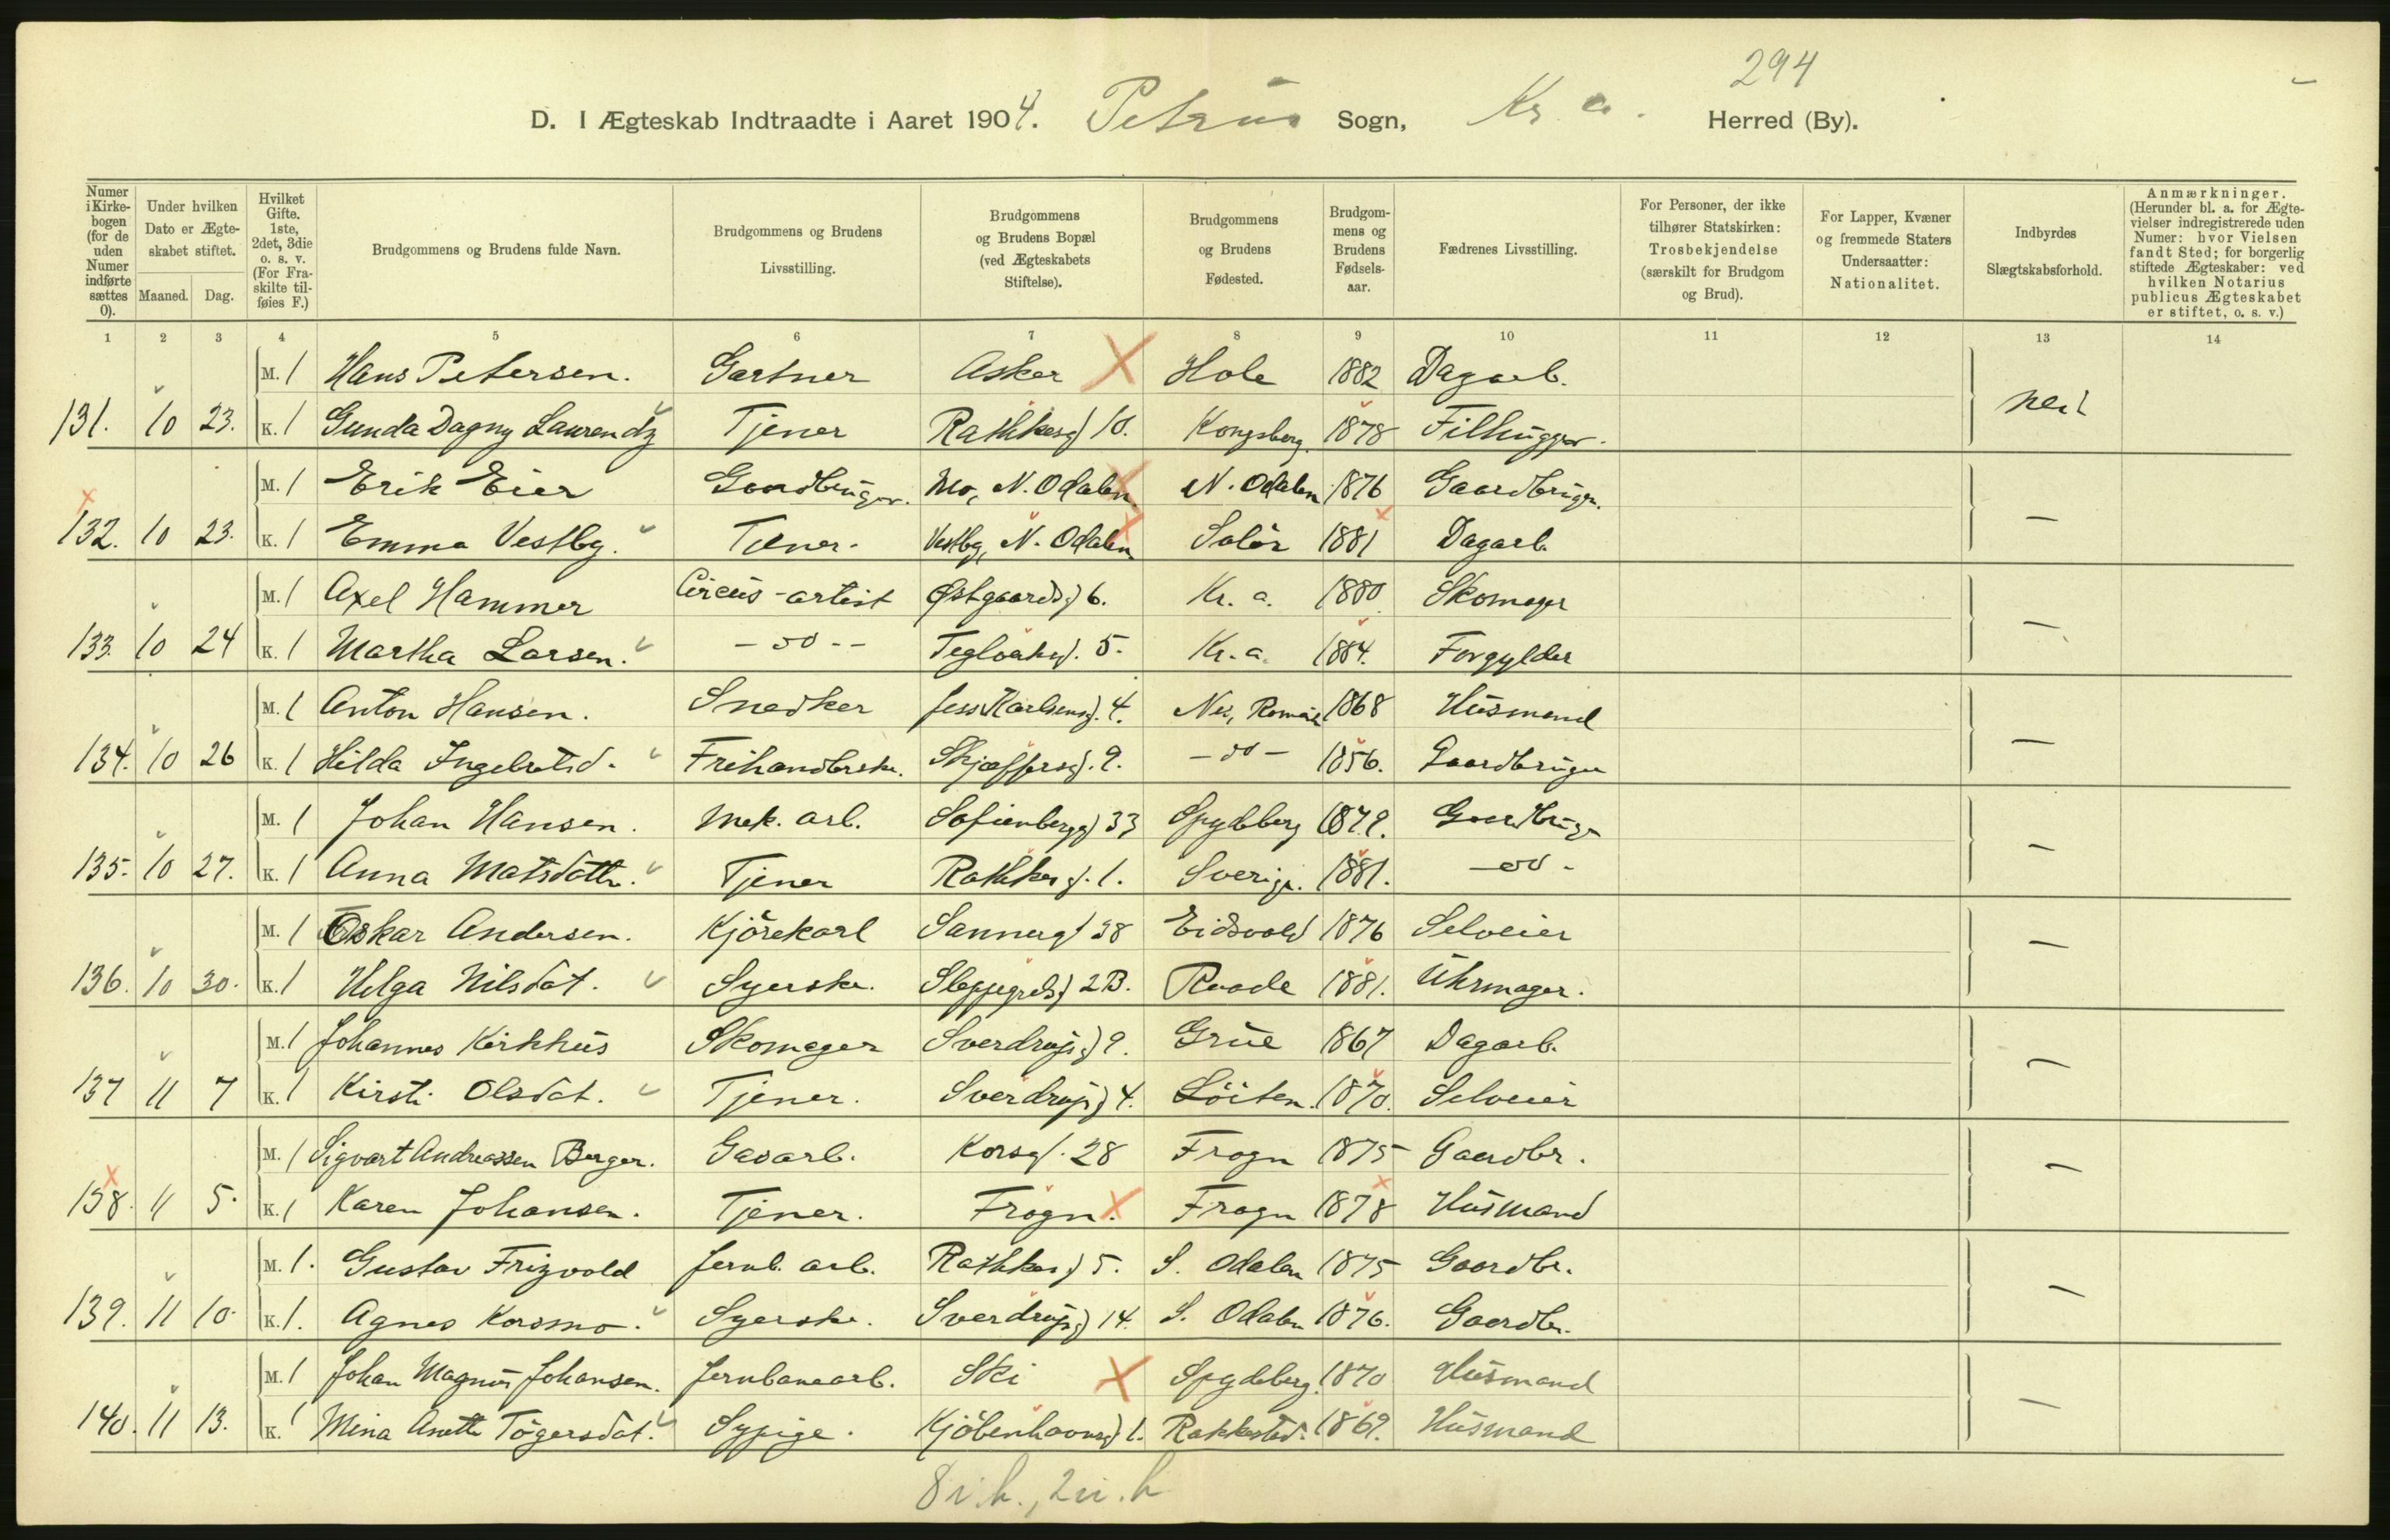 294
D. I Ægteskab Indtraadte i Aaret 1904. Petrus Sogn, Kr. a. Herred (By).
Numer i Kirkebogen (for de uden Numer indførte sættes 0).
Under hvilken Dato er Ægteskabet stiftet.
Maaned. Dag.
Hvilket Gifte. 1ste, 2det, 3die o. s. v. (For Fraskilte tilføies F.)
Brudgommens og Brudens fulde Navn.
Brudgommens og Brudens Livsstilling.
Brudgommens og Brudens Bopæl (ved Ægteskabets Stiftelse).
Brudgommens og Brudens Fødested.
Brudgommens og Brudens Fødselsaar.
Fædrenes Livsstilling.
For Personer, der ikke tilhører Statskirken: Trosbekjendelse (særskilt for Brudgom og Brud).
For Lapper, Kvæner og fremmede Staters Undersaatter: Nationalitet.
Indbyrdes Slægtskabsforhold.
Anmærkninger. (Herunder bl. a. for Ægtevielser indregistrerede uden Numer: hvor Vielsen fandt Sted; for borgerlig stiftede Ægteskaber: ved hvilken Notarius publicus Ægteskabet er stiftet, o. s. v.)
1 2 3 4 5 6 7 8 9 10 11 12 13 14
M. 1 Hans Petersen. Gartner Asker Hole 1882 Dagarb.
131. 10 23. K. 1 Gunda Dagny Tjener Rathkesg 10. Kongsberg. 1878 Filhugger. nei
M. 1 Erik Eier Gaardbruger. Mo, N. Odalen N. Odalen 1876 Gaardbruger.
132. 10 23. K. 1 Emma Vestby. Tjener. Vestby, N. Odalen Solör 1881 Dagarb. —
M. 1 Axel Hammer Circus-artist Østgaardsg 6. Kr. a. 1880 Skomager
133. 10 24 K. 1 Martha Larsen. — do — Teglverksg. 5. Kr. a. 1884. Forgylder —
M. 1 Anton Hansen. Snedker Jess Karlsensg. 4. Nes, Romerike 1868 Husmand
134. 10 26 K. 1 Hilda Ingebretsd. Frihandlerske. Skjæffersg. 9. — do — 1856. Gaardbruger —
M. 1 Johan Hansen. Mek. arb. Sofienbergg 33 Spydeberg 1879. Gaardbruger
135. 10 27. K. 1 Anna Matsdotter. Tjener Rathkesg. 1. Sverige. 1881. — do — —
M. 1 Oskar Andersen. Kjörekarl Sannerg 38 Eidsvold 1876 Selveier
136. 10 30. K. 1 Helga Nilsdat. Syerske. Sleppegrelsg 2B. Raade 1881. Uhrmager. —
M. 1 Johannes Kirkhus Skomager Sverdrupsg 9. Grue 1867 Dagarb.
137 11 7 K. 1 Kirsti Olsdat. Tjener. Sverdrupsg 4. Löiten. 1870. Selveier —
M. 1 Sigvart Andreassen Berger. Gasarb. Korsg. 28 Frogn 1875 Gaardbr.
138. 11 5. K. 1 Karen Johansen. Tjener. Frogn. Frogn 1878 Husmand —
M. 1. Gustav Frizvold Jernb. arb. Rathkesg 5. S. Odalen 1875 Gaardbr.
139. 11 10. K. 1. Agnes Korsmo. Syerske. Sverdrupsg 14. S. Odalen 1876. Gaardbr. —
M. 1 Johan Magnus Johansen. Jernbanearb. Ski Spydeberg. 1870 Husmand
140. 11 13. K. 1 Mina Anette Tögersdat. Sypige. Kjöbenhavnsg 1. Rakkestad. 1869. Husmand —
8 i. h., 2 u. h